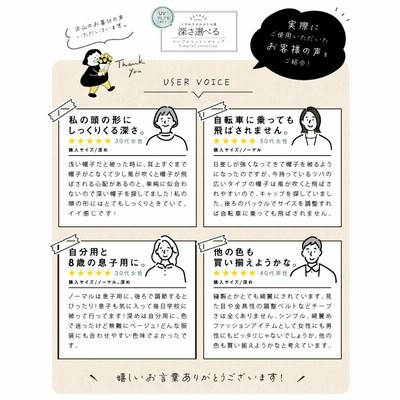 沢山のお喜びの声
いただいています。
UV
深さ選べる
シンプルコットンキャップ
SimpleCottonCap
実際に
ご使用いただいた
お客様の声を
ご紹介!
Thank
You
USER VOICE
私の頭の形に
しっくりくる深さ。
★★★★★ 30代女性
購入サイズ/深め
浅い帽子だと被った時に、耳上すぐまで
帽子がこなくて少し風が吹くと帽子が飛
ばされる心配があるのと、単純に似合わ
ないので深い帽子を探してました!私の
頭の形にはとてもしっくりときていて、
イイ感じです!
自転車に乗っても
飛ばされません。
★★★★★ 50代女性
購入サイズ/ノーマル
日差しが強くなってきて帽子を被るように
なったのですが、今持っているツバの
広いタイプの帽子は風が吹くと飛ばさ
れやすいので、キャップを探していまし
た。後ろのバックルでサイズを調整すれ
ば自転車に乗っても飛ばされません。
自分用と
8歳の息子用に。
★★★★★ 30代女性
購入サイズ/ノーマル、深め
ノーマルは息子用に、後ろで調節すると
ぴったり!息子も気に入って毎日学校に
被って行ってます!深めは自分用に、色
で迷ったけど無難にベージュ!どんな服
装にも合わせやすい色味でよかったで
す。
他の色も
買い揃えようかな。
★★★★★ 40代男性
購入サイズ/深め
縫製がとても綺麗にされています。見
た目や金具性の調整ベルトなどチープ
さは全くありません。シンプル、綺麗め
ファッションアイテムとして女性にも男
性にもピッタリじゃないでしょうか。他の
色も買い揃えようかなと考えています。
嬉しいお言葉ありがとうございます!